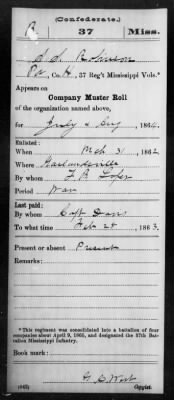 (Confederate.)
R 37 Miss.
Robinson
Co. H, 37 Reg't Mississippi Vols.*
Appears on
Company Muster Roll
of the organization named above,
for July & Aug, 1864.
Enlisted:
When Mch 31, 1862
Where
By whom
Period War
Last paid:
By whom Capt
To what time Feb 28, 1863.
Present or absent Present
Remarks:
*This regiment was consolidated into a battalion of four companies about April 9, 1865, and designated the 37th Battalion Mississippi Infantry.
Book mark:
(642) Copyist.